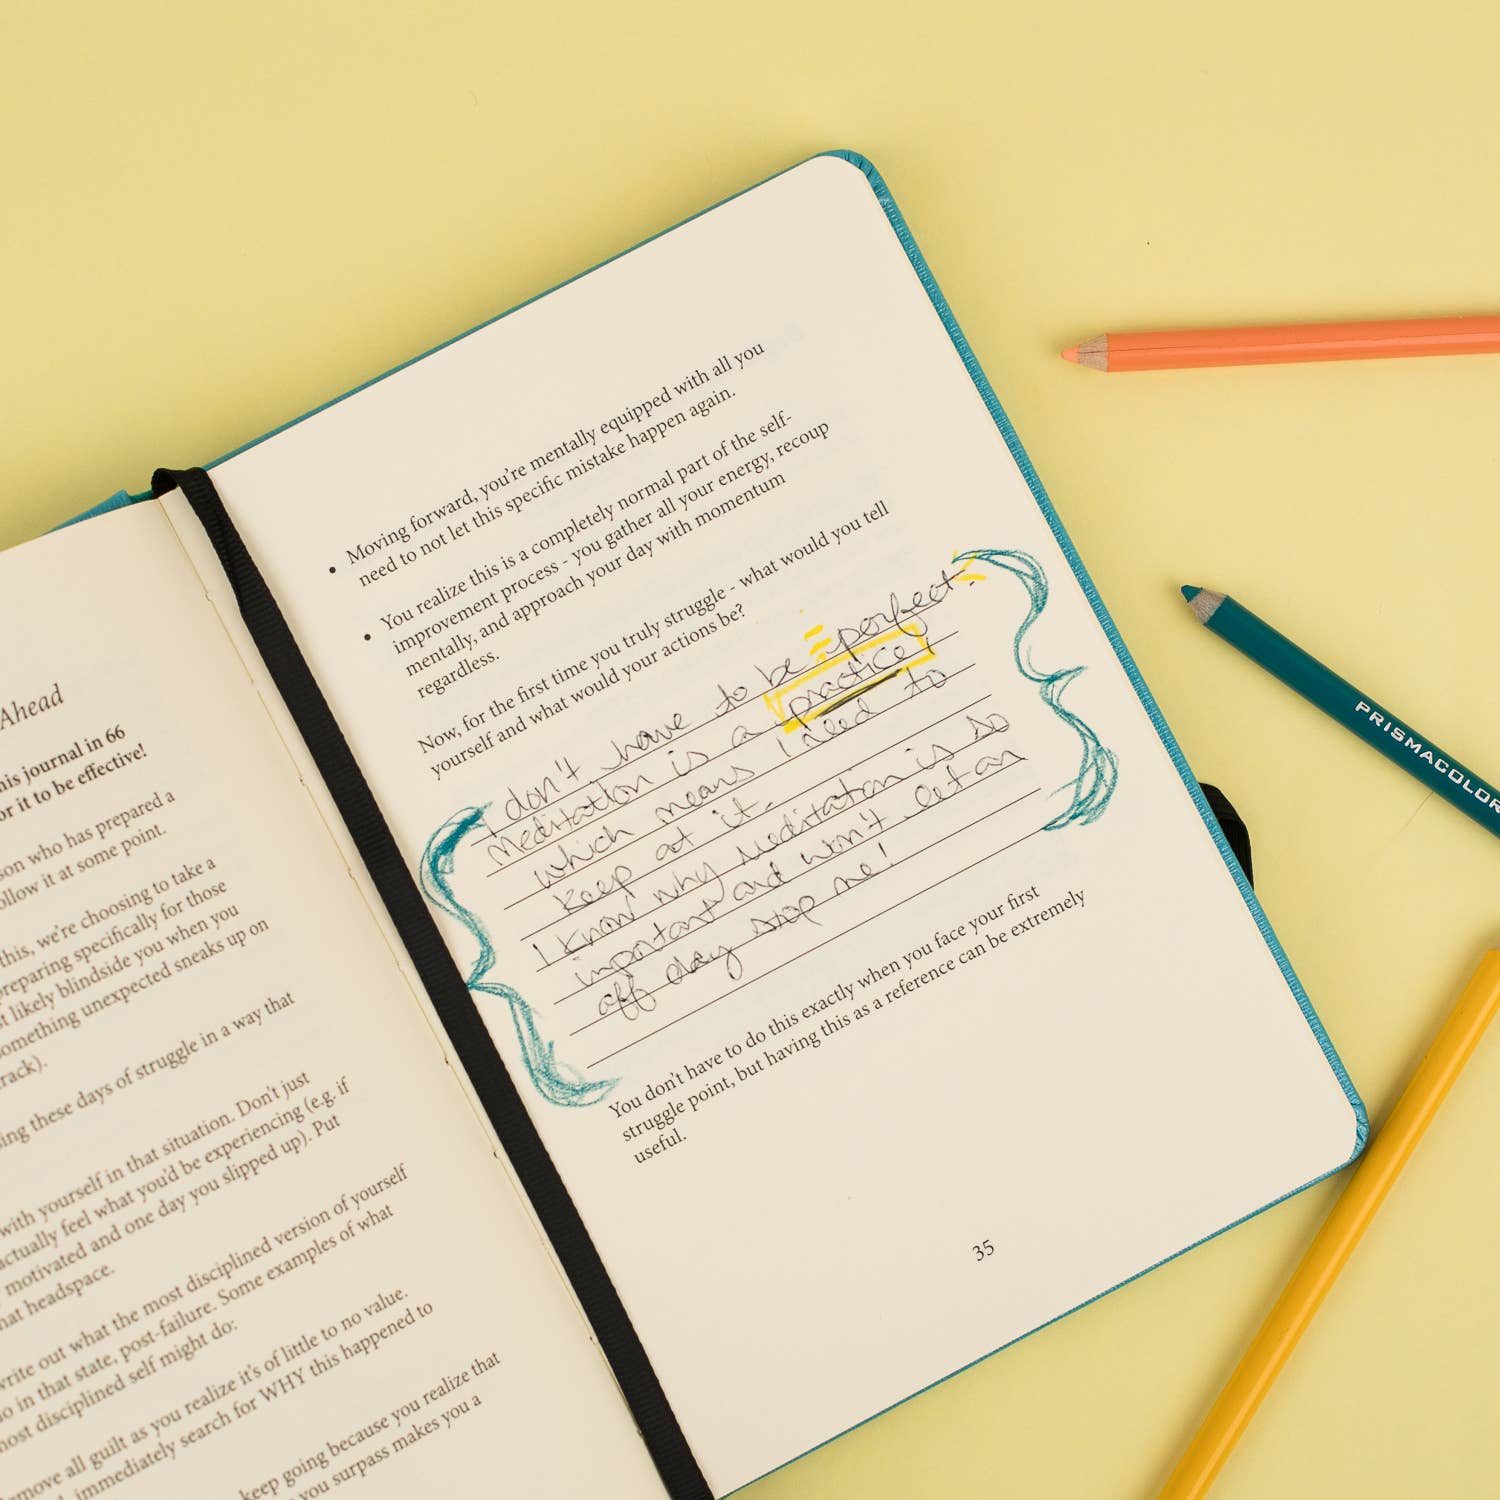 Ahead
his journal in 66
or it to be effective!
son who has prepared a
ollow it at some point.
this, we're choosing to take a
preparing specifically for those
t likely blindside you when you
something unexpected sneaks up on
rack).
ing these days of struggle in a way that
with yourself in that situation. Don't just
actually feel what you'd be experiencing (e.g. if
motivated and one day you slipped up). Put
hat headspace.
write out what the most disciplined version of yourself
o in that state, post-failure. Some examples of what
most disciplined self might do:
move all guilt as you realize it's of little to no value.
immediately search for WHY this happened to
keep going because you realize that
you surpass makes you a
• Moving forward, you're mentally equipped with all you
need to not let this specific mistake happen again.
• You realize this is a completely normal part of the self-
improvement process - you gather all your energy, recoup
mentally, and approach your day with momentum
regardless.
Now, for the first time you truly struggle - what would you tell
yourself and what would your actions be?
I don't have to be perfect.
Meditation is a practice!
which means I need to
keep at it.
I know why meditation is so
important and won't let an
off day stop me!
You don't have to do this exactly when you face your first
struggle point, but having this as a reference can be extremely
useful.
35
PRISMACOLOR